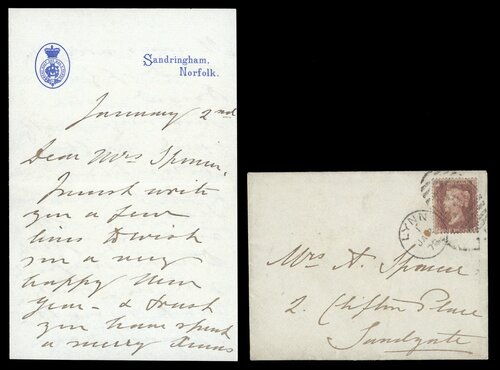 Sandringham,
Norfolk.
January 2nd
Dear Mrs
I must write
you a few
lines to wish
you a very
happy New
Year - & trust
you have spent
a merry Xmas
LYNN
Mrs A.
2. Clifton Place
Sandgate